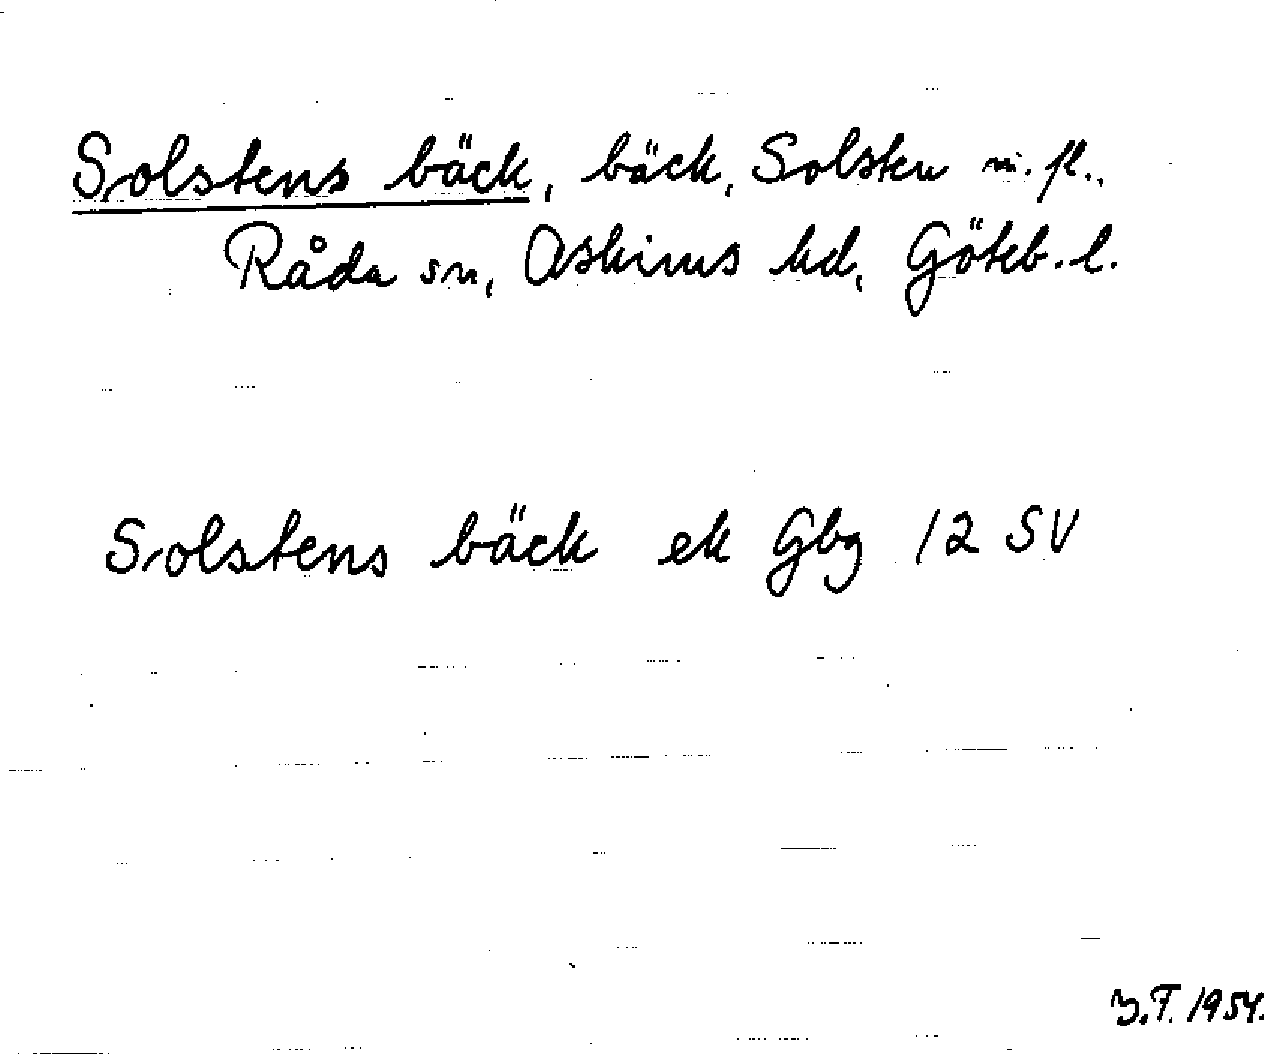 Solstens bäck, bäck, Solsten m.fl.,
Råda sn, Askims hd, Göteb.l.
Solstens bäck ek Gbg 12 SV
T. 1954.